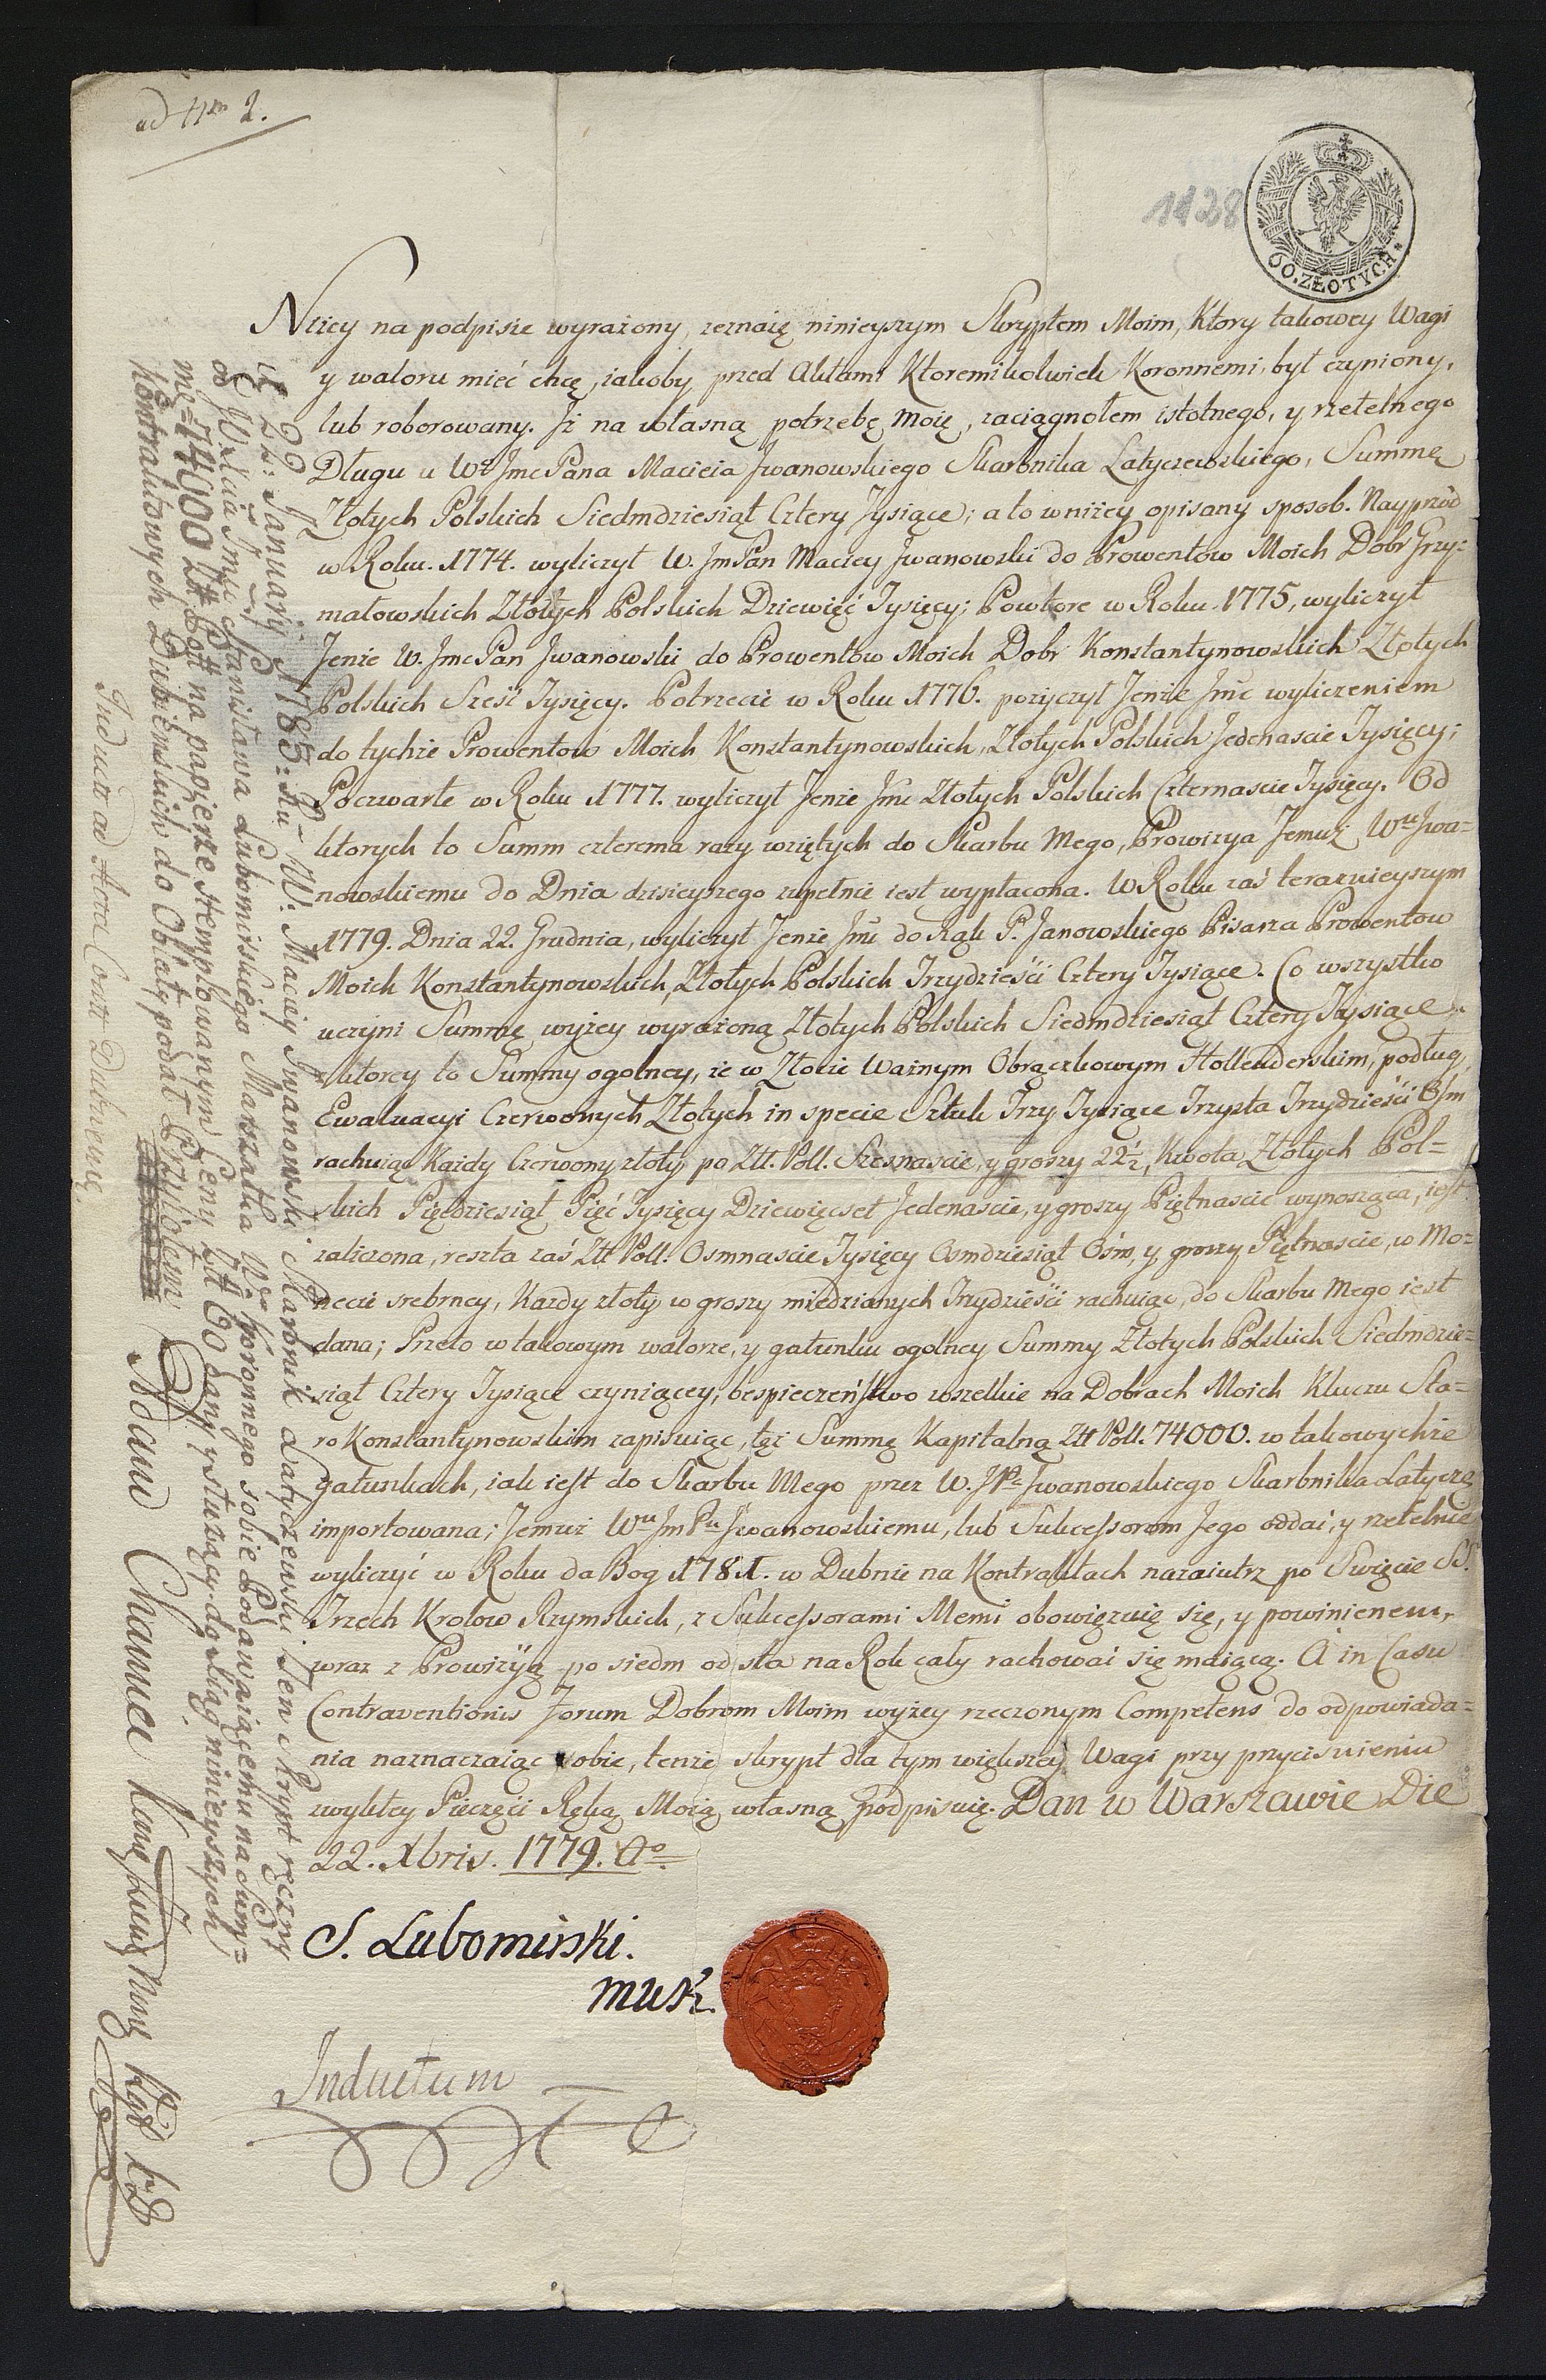 ad Nrm 2.
1128
60. ZŁOTYCH
Niżey na podpisie wyrażony, zeznaię ninieyszym Skryptem Moim, Ktory takowey Wagi
y waloru mieć chcę, iakoby przed Aktami Ktoremikolwiek Koronnemi, był czyniony,
lub roborowany. Jż na własną potrzebę moię, zaciągnołem istotnego, y rzetelnego
Długu u Wº JmcPana Macieia Jwanowskiego Skarbnika Latyczewskiego, Summę
Złotych Polskich Siedmdziesiąt Cztery Tysiące; a to w niżey opisany sposob. Nayprzod
w Roku. 1774. wyliczył W. JmPan Maciey Jwanowski do Prowentow Moich Dobr Grzy=
małowskich Złotych Polskich Dziewięć Tysięcy; Powtore w Roku 1775, wyliczył
Jenże W. JmcPan Jwanowski do Prowentow Moich Dobr Konstantynowskich Złotych
Polskich Sześć Tysięcy. Potrzecie w Roku 1776. pożyczył Jenże Jmc wyliczeniem
do tychże Prowentow Moich Konstantynowskich, Złotych Polskich Jedenascie Tysięcy;
Poczwarte w Roku 1777. wyliczył Jenże Jmc Złotych Polskich Czternascie Tysięcy. Od
ktorych to Summ czterema razy wziętych do Skarbu Mego, Prowizya Jemuż Wu Jwa=
nowskiemu do Dnia dzisieyszego zupełnie iest wypłacona. W Roku zaś teraznieyszym
1779. Dnia 22. Grudnia, wyliczył Jenże Jmc do Rąk P. Janowskiego Pisarza Prowentow
Moich Konstantynowskich, Złotych Polskich Trzydzieści Cztery Tysiące. Co wszystko
uczyni Summę wyżey wyrażoną Złotych Polskich Siedmdziesiąt Cztery Tysiące
ktorey to Summy ogolney, że w Złocie Ważnym Obrączkowym Hollenderskim, podług
Ewaluacyi Czerwonych Złotych in specie Sztuk Trzy Tysiące Trzysta Trzydzieści Ośm
rachuiąc Każdy Czerwony złoty po Złł. Poll. Szesnascie, y groszy 22½, Kwota Złotych Pol=
skich Pięćdziesiąt Pięć Tysięcy Dziewięcset Jedenascie, y groszy Piętnascie wynosząca, iest
zaliczona, reszta zaś Złł Poll. Osmnascie Tysięcy Osmdziesiąt Ośm, y groszy Piętnascie, w Mo=
necie srebrney, Każdy złoty w groszy miedzianych Trzydzieści rachuiąc, do Skarbu Mego iest
dana; Przeto w takowym walorze, y gatunku ogolney Summy Złotych Polskich Siedmdzie=
siąt Cztery Tysiące czyniącey, bespieczeństwo wszelkie na Dobrach Moich Kluczu Sta=
ro Konstantynowskim zapisuiąc, tęż Summę Kapitalną Złł Poll. 74000. w takowychże
gatunkach, iak iest do Skarbu Mego przez W. JPa Jwanowskiego Skarbnika Latycze
importowana; Jemuż Wu JmPu Jwanowskiemu, lub Sukcessorom Jego oddać, y rzetelnie
wyliczyć w Roku da Bog 1781. w Dubnie na Kontraktach nazaiutrz po Swięcie SS.
Trzech Krolow Rzymskich, z Sukcessorami Memi obowięzuię się, y powinienem,
wraz z Prowizyą po siedm od sta na Rok cały rachować się maiącą. A in Casu
Contraventionis Forum Dobrom Moim wyżey rzeczonym Competens do odpowiada=
nia naznaczaiąc sobie, tenże skrypt dla tym większey Wagi przy przycisnieniu
zwykłey Pieczęci Ręką Moią własną podpisuię. Dan w Warszawie Die
22. Xbris. 1779. Aº.
S. Lubomirski.
mwk.
Inductum
Januarij 1785: Ru W: Maciey Jwanowski Skarbnik Latyczewski Ten Skrypt ręczny
od JWścia Jmci Stanisława Lubomirskiego Marszałka Wgo Koronnego sobie Podawaiącemu na Sum=
mę = 74000 Złł Poll na papierze stemplowanym Ceny Złł 60 dany y służący do Xiąg ninieyszych
Kontraktowych Dubienskich do Oblaty podał Przyiąłem
Adam Chamiec